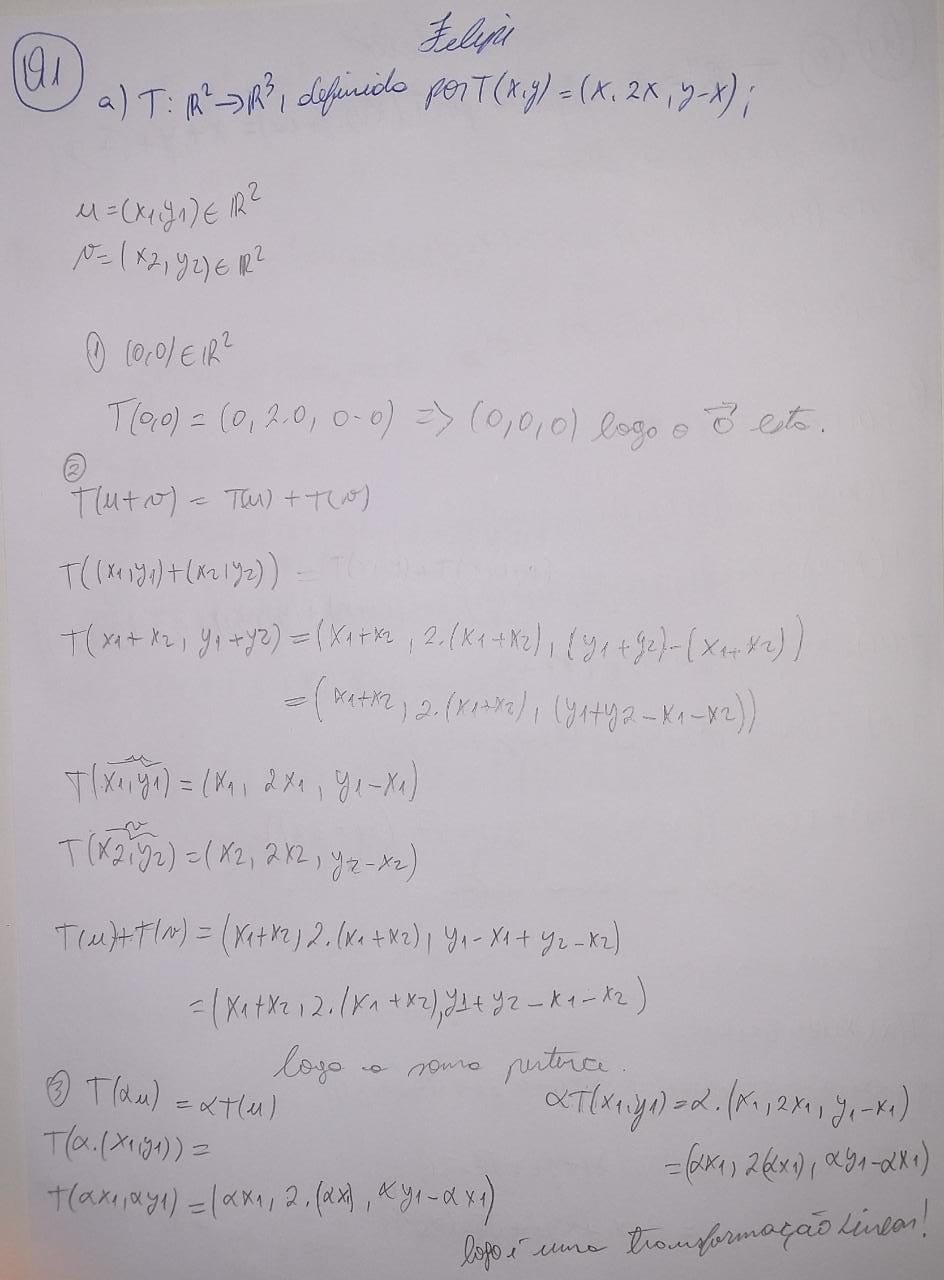 Felipe
Q1
a) T: ℝ² → ℝ³, definida por T(x,y) = (x, 2x, y-x);
u = (x1,y1) ∈ ℝ²
v = (x2, y2) ∈ ℝ²
① (0,0) ∈ ℝ²
T(0,0) = (0, 2.0, 0-0) => (0,0,0) logo o 0⃗ esta.
②
T(u+v) = T(u) + T(v)
T((x1,y1)+(x2,y2)) =
T(x1+x2, y1+y2) = (x1+x2, 2.(x1+x2), (y1+y2)-(x1+x2))
= (x1+x2, 2.(x1+x2), (y1+y2-x1-x2))
u
T(x1,y1) = (x1, 2x1, y1-x1)
v
T(x2,y2) = (x2, 2x2, y2-x2)
T(u)+T(v) = (x1+x2, 2.(x1+x2), y1-x1+y2-x2)
= (x1+x2, 2.(x1+x2), y1+y2-x1-x2)
logo a soma pertence.
③ T(αu) = αT(u)
T(α.(x1,y1)) =
T(αx1,αy1) = (αx1, 2.(αx1), αy1-αx1)
αT(x1,y1) = α.(x1, 2x1, y1-x1)
= (αx1, 2(αx1), αy1-αx1)
logo é uma transformação Linear!